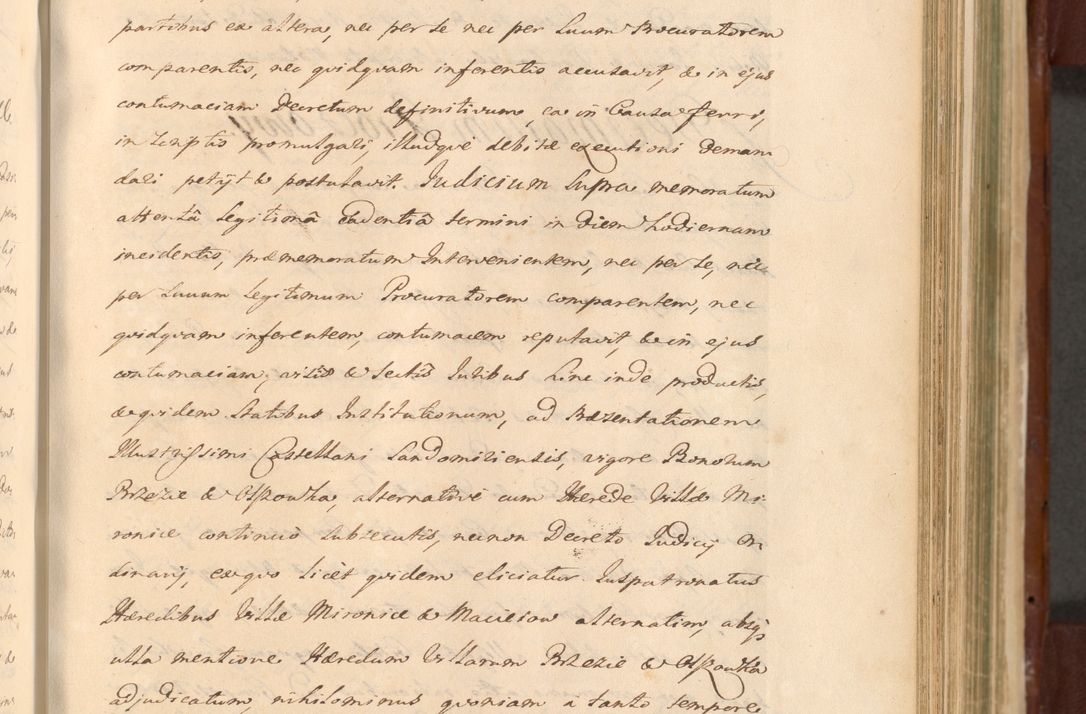 partibus ex altera, nec per se nec per suum Procuratorem
comparentis, nec quidquam inferentis accusavit, & in ejus
contumaciam Decretum definitivum, ea in Causa ferri,
in scriptis promulgari, illudque debitæ executioni deman
dari petijt & postulavit. Judicium supra memoratum
attentâ legitimâ Cadentiâ termini in diem hodiernam
incidentis, præmemoratum Intervenientem, nec per se, nec
per suum legitimum Procuratorem comparentem, nec
quidquam inferentem, contumacem reputavit, & in ejus
contumaciam, visis & lectis Juribus hinc inde productis,
& quidem statibus Institutionum, ad Præzentationem
Illustrissimi Castellani Sandomiriensis, vigore Bonorum
Brzezie & Ossowka, alternativé cum Hærede Villæ Mi
ronice continuo subsecutis, necnon Decreto Judicij Or
dinarij, ex quo licèt quidem eliciatur Juspatronatus
Hæredibus Villæ Mironice & Maciejow alternatim, absq
ulla mentione Hæredum Villarum Brzezie & Ossowka
adjudicatum, nihilominus quoniam à tanto tempore